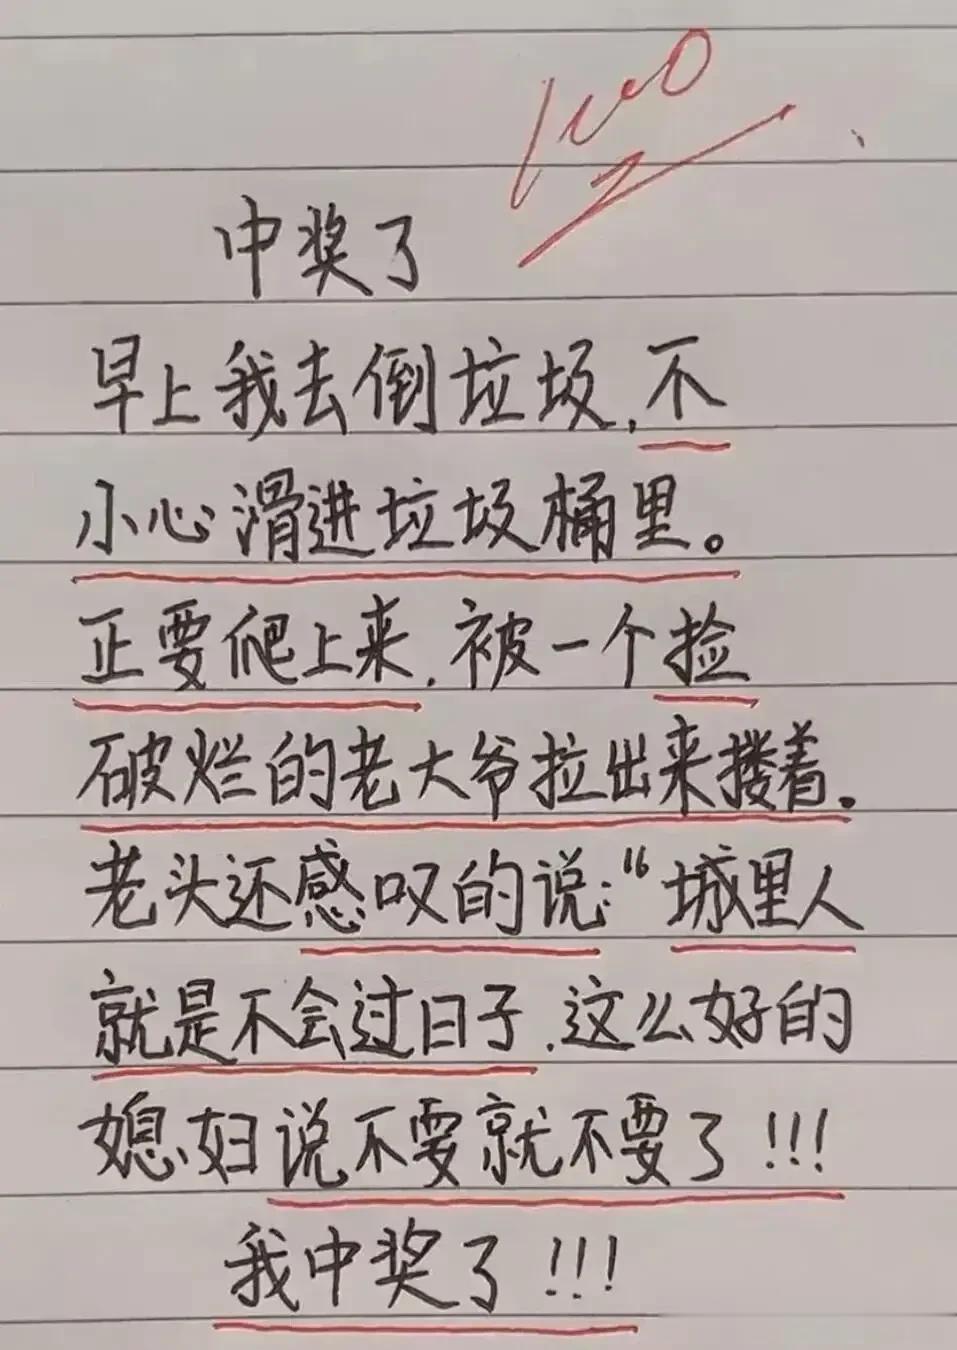 100
中奖了
早上我去倒垃圾,不
小心滑进垃圾桶里。
正要爬上来,被一个捡
破烂的老大爷拉出来搂着。
老头还感叹的说:“城里人
就是不会过日子,这么好的
媳妇说不要就不要了!!!
我中奖了!!!